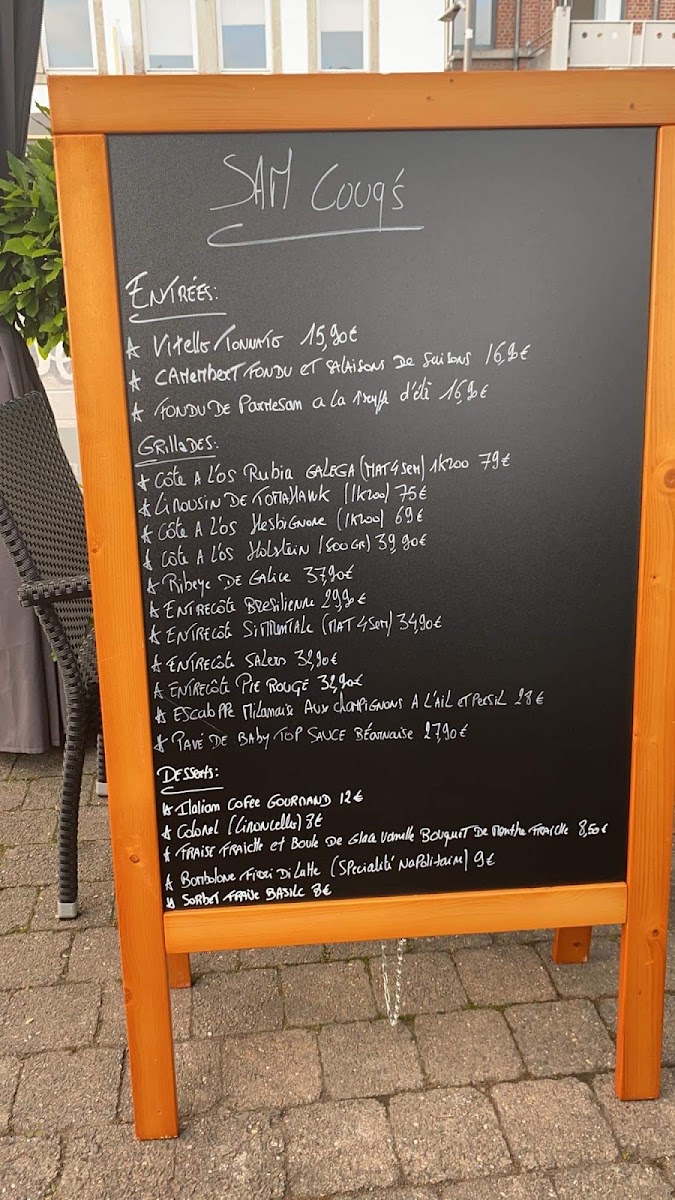 SAM Couq's
ENTRÉES:
Vitello Tonnato 15,90€
CAMembert FONDU et SALAISONS De Saisons 16,90€
FONDU De Parmesan a La Truffe d'été 16,90€
GrillADES:
Côte A L'os Rubia GALEGA (MAT 4 Sem) 1K200 79€
Limousin DE TOMAHAWK (1K200) 75€
Côte A L'os Hesbignone (1K200) 69€
Côte A L'os Holstein (600GR) 39,90€
Ribeye DE Galice 37,90€
ENTRECôte Bresilienne 29,90€
ENTRECôte SIMMENTALE (MAT 4 Sem) 34,90€
ENTRECôte SALERS 32,90€
ENTRECôte PIE ROUGE 32,90€
Escaloppe Milanaise AUX CHAMPIGNONS A L'AIL et PERSIL 28€
PAVÉ DE BABY TOP SAUCE BÉARNAISE 27,90€
DESSerts:
Italian Cofee GOURMAND 12€
Colonel (Limoncello) 8€
FRAISE FRAICHE et Boule De Glace Vanille Bouquet De Menthe FRAICHE 8,50€
Bombolone Fiori Di Latte (SPecialité NAPolitaine) 9€
SORBET FRAISE BASILIC 8€